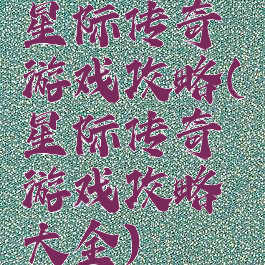 星际传奇
游戏攻略(
星际传奇
游戏攻略
大全)